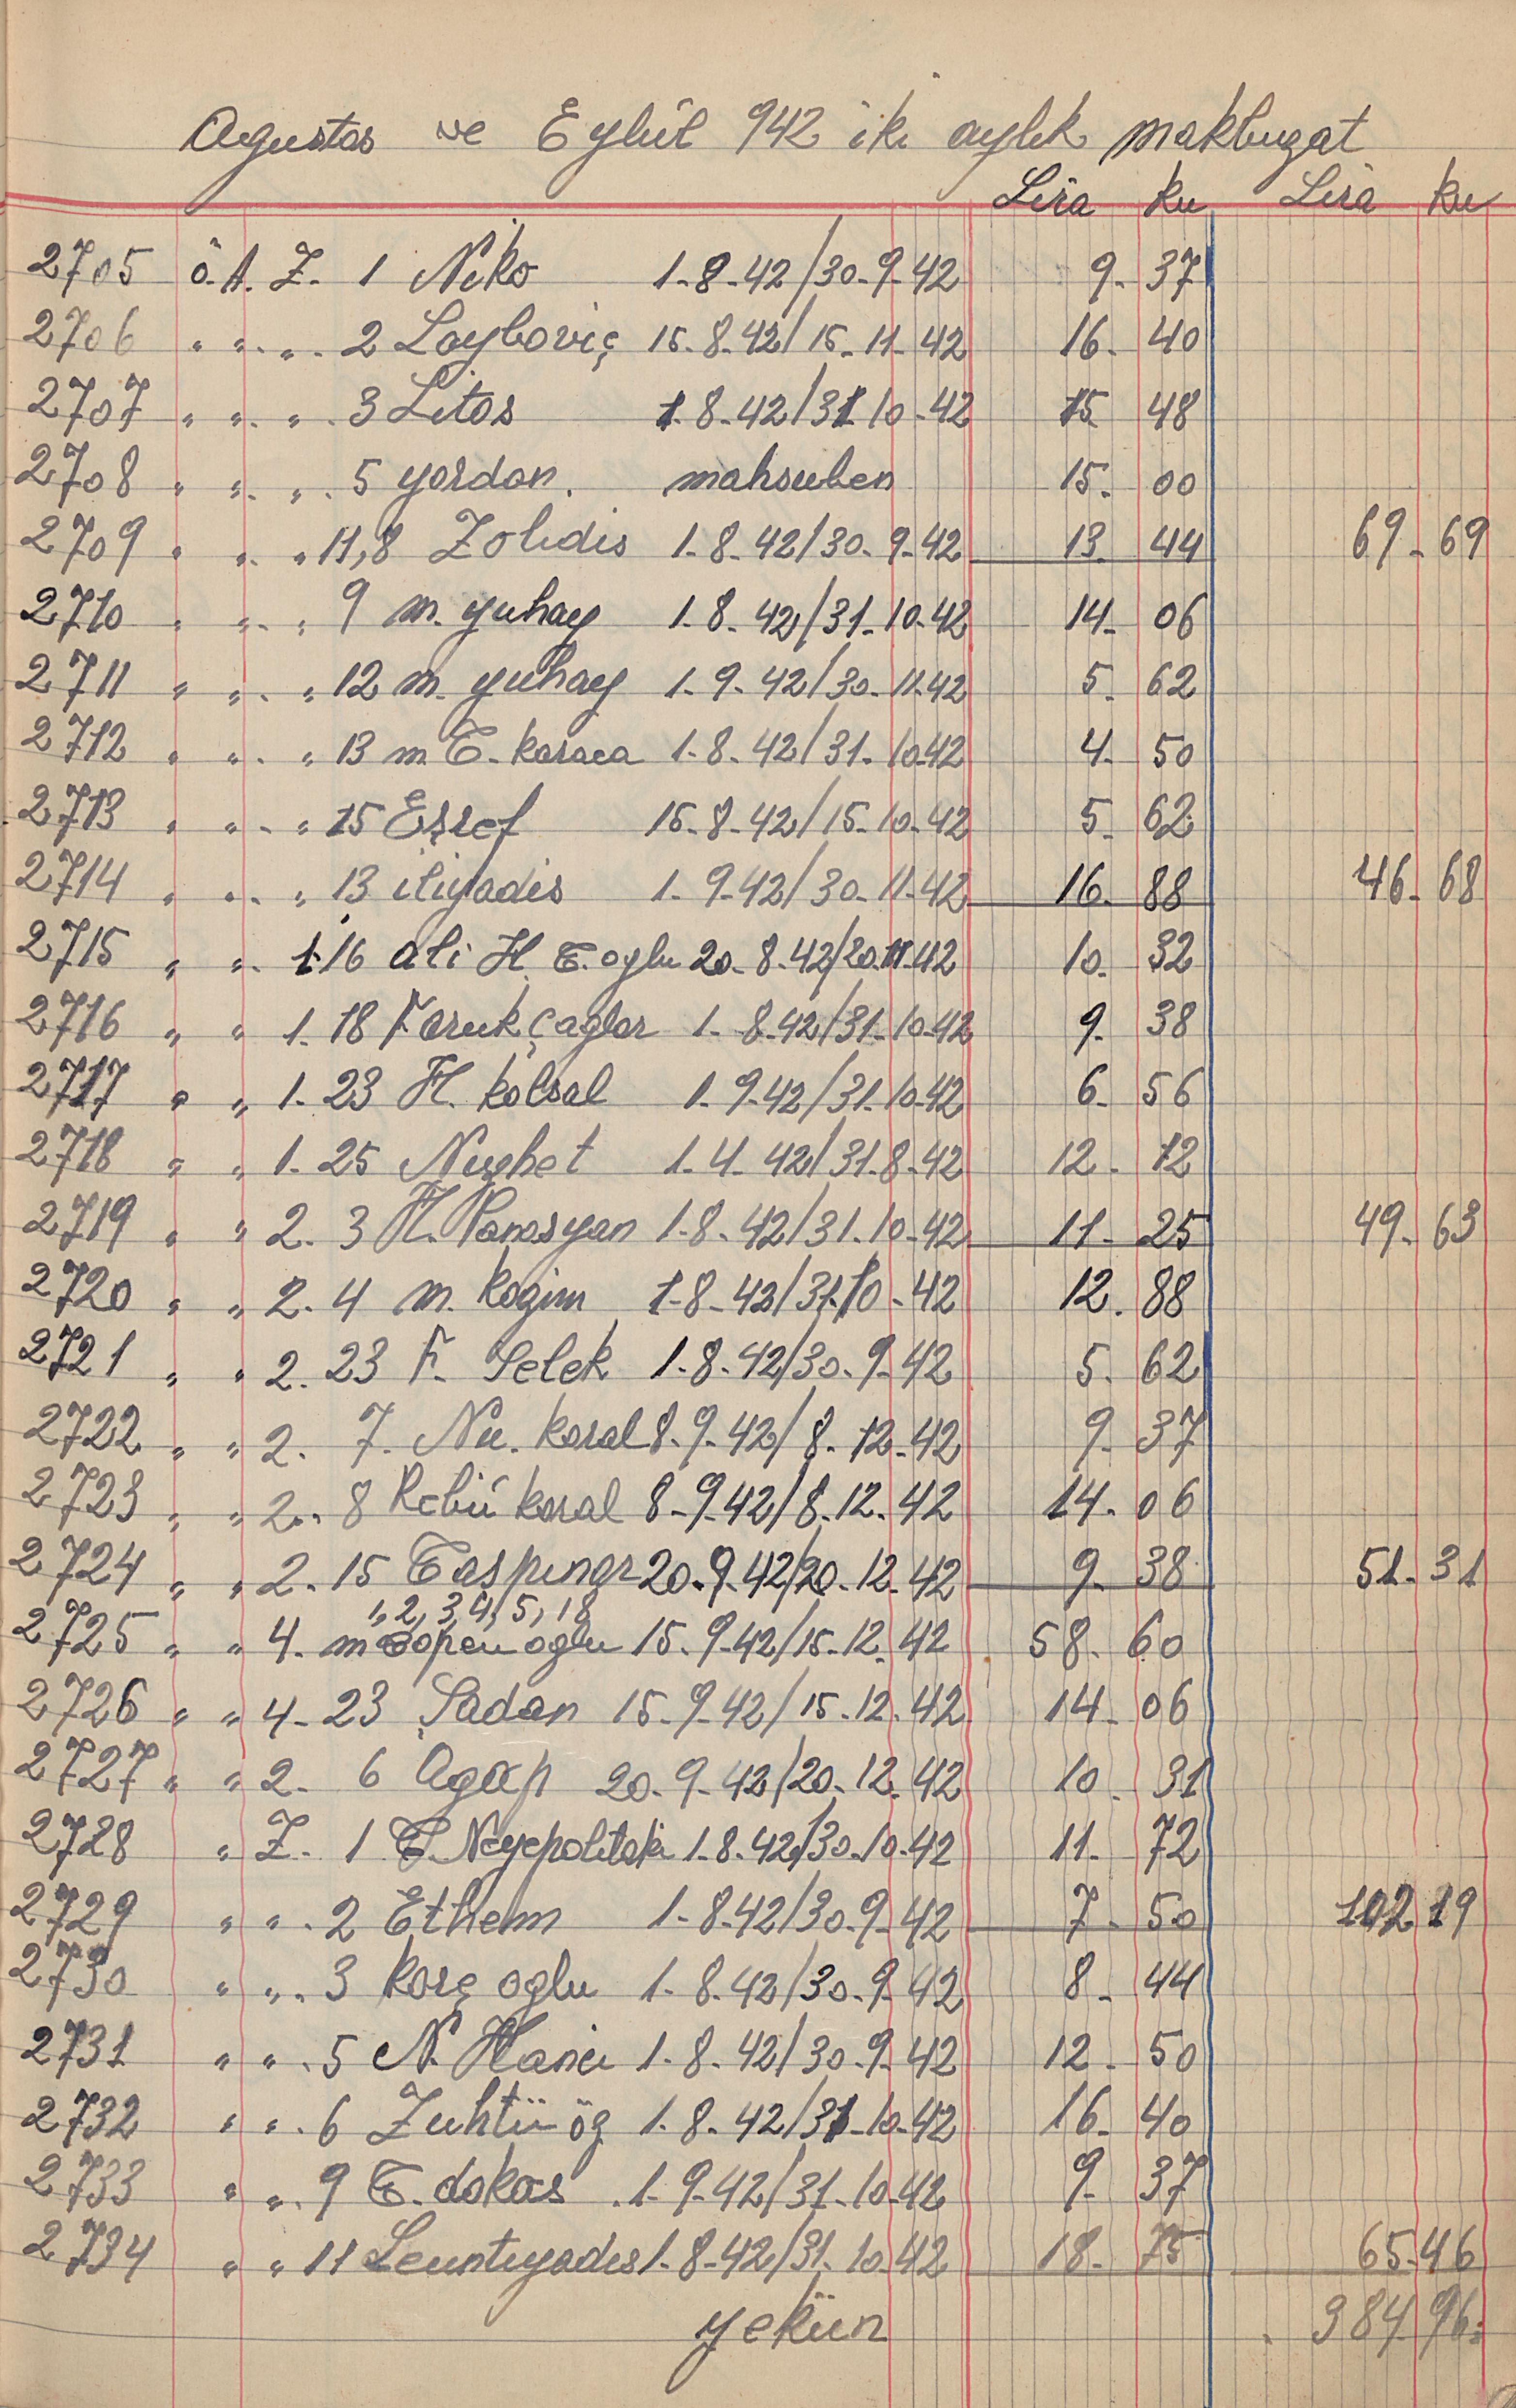 Agustos ve Eylûl 942 iki aylık makbuzat
Lira ku Lira ku
2705 ö. A. Z. 1 Niko 1-8-42/30-9-42 9- 37
2706 " " " 2 Layboviç 15-8-42/15-11-42 16- 40
2707 " " " 3 Litos 1-8-42/31 10-42 15 48
2708 " " " 5 yordan. mahsuben 15- 00
2709 " " " 11,8 Zolidis 1-8-42/30-9-42 13- 44 69-69
2710 " " " 9 m. yuhay 1-8-42/31-10-42 14- 06
2711 " " " 12 m. yuhay 1-9-42/30-11-42 5- 62
2712 " " " 13 m T. karaca 1-8-42/31-10-42 4- 50
2713 " " " 15 Eşref 15-8-42/15-10-42 5- 62
2714 " " " 13 iliyadis 1-9-42/30-11-42 16- 88 46-68
2715 " " 1-16 Ali H. T. oglu 20-8-42/20-11-42 10- 32
2716 " " 1. 18 Faruk çaglar 1-8-42/31-10-42 9- 38
2717 " " 1- 23 H. kolsal 1-9-42/31-10-42 6- 56
2718 " " 1- 25 Nuzhet 1-4-42/31-8-42 12- 12
2719 " " 2. 3 H. Panosyan 1-8-42/31-10-42 11- 25 49-63
2720 " " 2. 4 m. kogim 1-8-42/31-10-42 12. 88
2721 " " 2. 23 F. Selek 1-8-42/30-9-42 5- 62
2722 " " 2. 7. Nu. koral 8-9-42/8-12-42 9- 37
2723 " " 2. 8 Rebii koral 8-9-42/8-12-42 14- 06
2724 " " 2. 15 Taspınar 20-9-42/20-12-42 9- 38 51-31
1, 2, 3, 4, 5, 18
2725 " " 4. m oglu 15-9-42/15-12-42 58- 60
2726 " " 4- 23 Şadan 15-9-42/15-12-42 14- 06
2727 " " 2. 6 Agop 20-9-42/20-12-42 10- 31
2728 " Z- 1 T. Neyepolitaki 1-8-42/30-10-42 11- 72
2729 " " 2 Ethem 1-8-42/30-9-42 7- 50 102 19
2730 " " 3 korç oglu 1-8-42/30-9-42 8- 44
2731 " " 5 N. Hancı 1-8-42/30-9-42 12- 50
2732 " " 6 Zuhtü öz 1-8-42/31-10-42 16- 40
2733 " " 9 T. dokas 1-9-42/31-10-42 9- 37
2734 " " 11 Leuntiyadis 1-8-42/31-10-42 18- 75 65-46
yekün 384 96